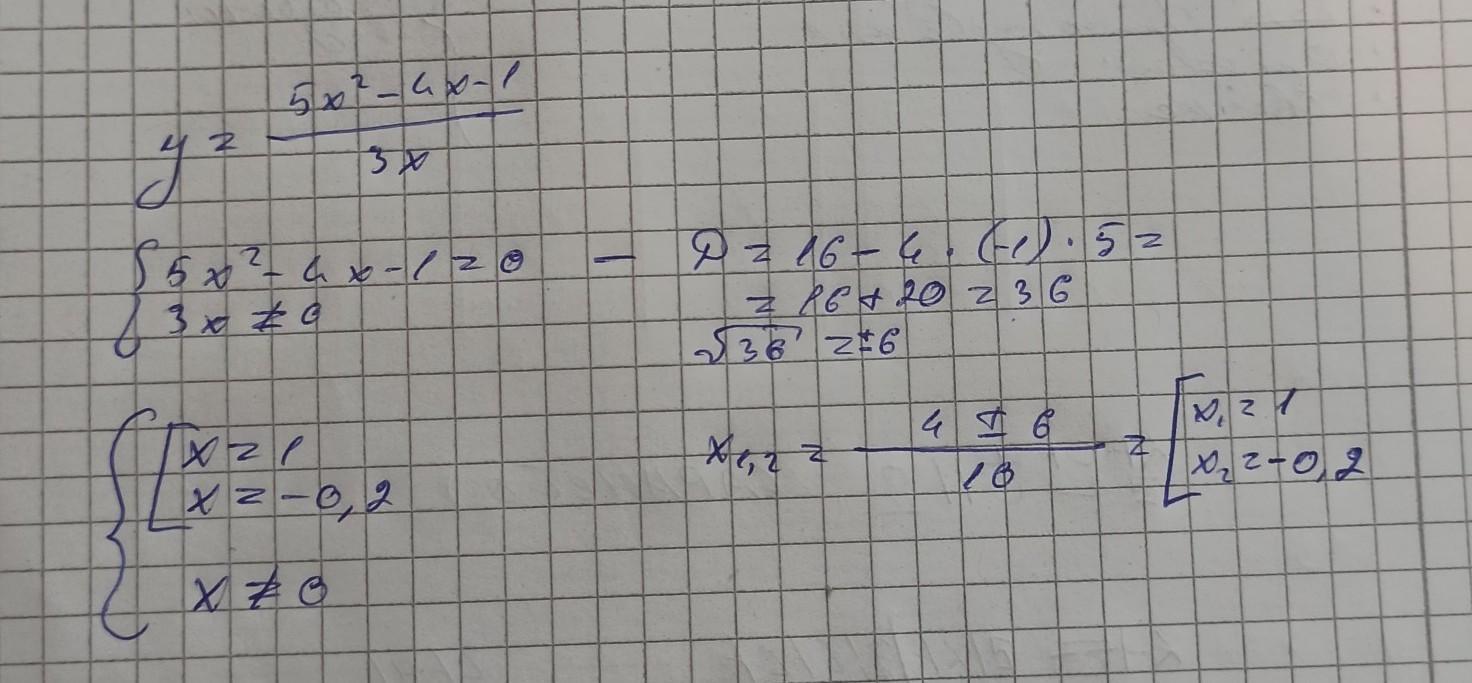 y = (5x² - 4x - 1) / (3x)
{ 5x² - 4x - 1 = 0 — D = 16 - 4 · (-1) · 5 =
3x ≠ 0 = 16 + 20 = 36
√36 = ±6
{ [ x = 1
x = -0,2
x ≠ 0
x₁,₂ = (4 ± 6) / 10 = [ x₁ = 1
x₂ = -0,2